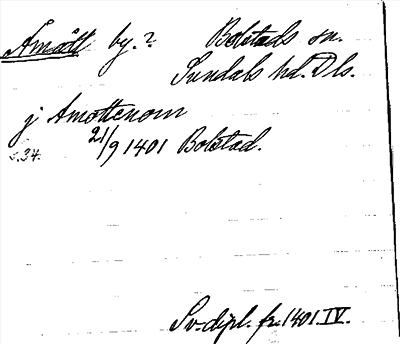 Åmått by.? Bolstads sn.
Sundals hd. Dls.
j Amottenom
s. 34. 21/9 1401 Bolstad.
Sv. dipl. fr. 1401. IV.